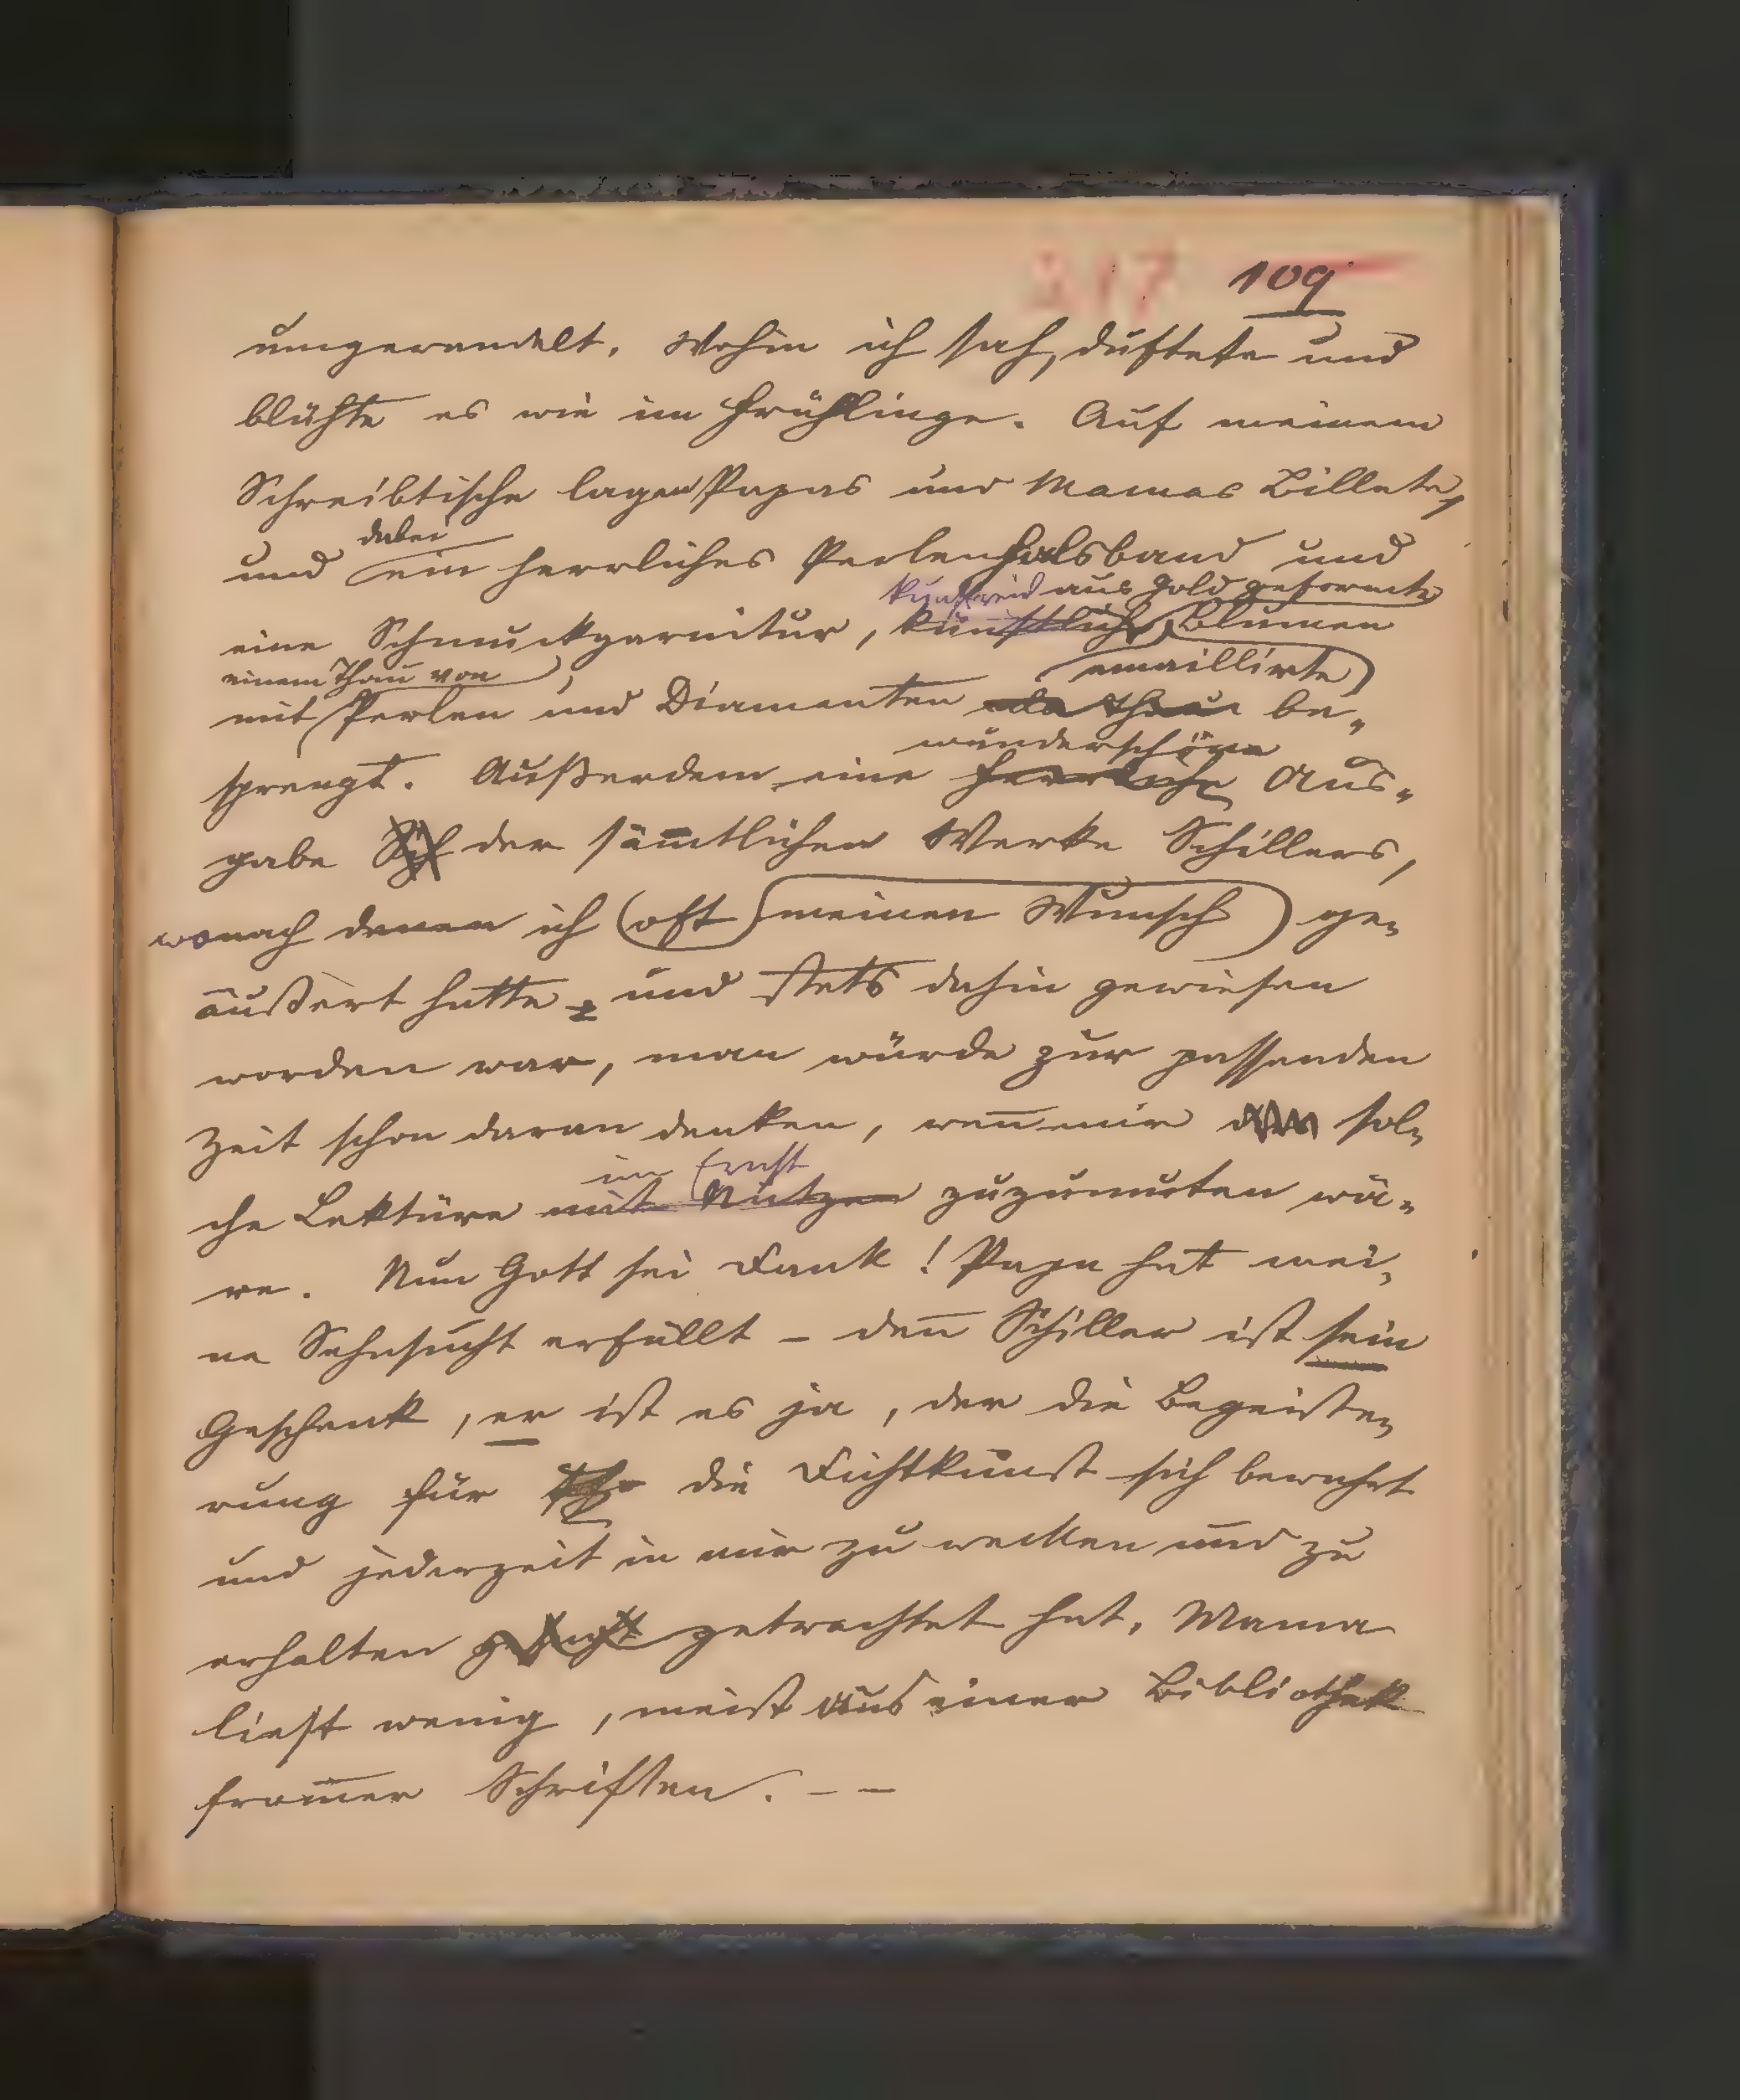 217 109
umgewandelt. Wohin ich sah, duftete und
blühte es wie im Frühlinge. Auf meinem
Schreibtische lagen Papas und Mamas Billete,
dabei
und ein herrliches Perlenhalsband und
aus Gold geformte
eine Schmuckgarnitur, künstliche Blumen
einem Thau von emaillirte
mit Perlen und Diamanten als Thau be-
wunderschöne
sprengt. Außerdem eine herrliche Aus-
gabe Sch der sämtlichen Werke Schillers,
wonach denen ich oft meinen Wunsch ge-
äußert hatte, und stets dahin gewiesen
worden war, man würde zur passenden
Zeit schon daran denken, wen̄ mir sol-
im Ernst
che Lektüre mit Nutzen zuzumuten wä-
re. Nun Gott sei Dank! Papa hat mei-
ne Sehnsucht erfüllt – den̄ Schiller ist sein
Geschenk, er ist es ja, der die Begeiste-
rung für die Dichtkunst sich bewahrt
und jederzeit in mir zu wecken und zu
erhalten getrachtet hat. Mama
liest wenig, meist aus einer Bibliothek
from̄er Schriften. – –